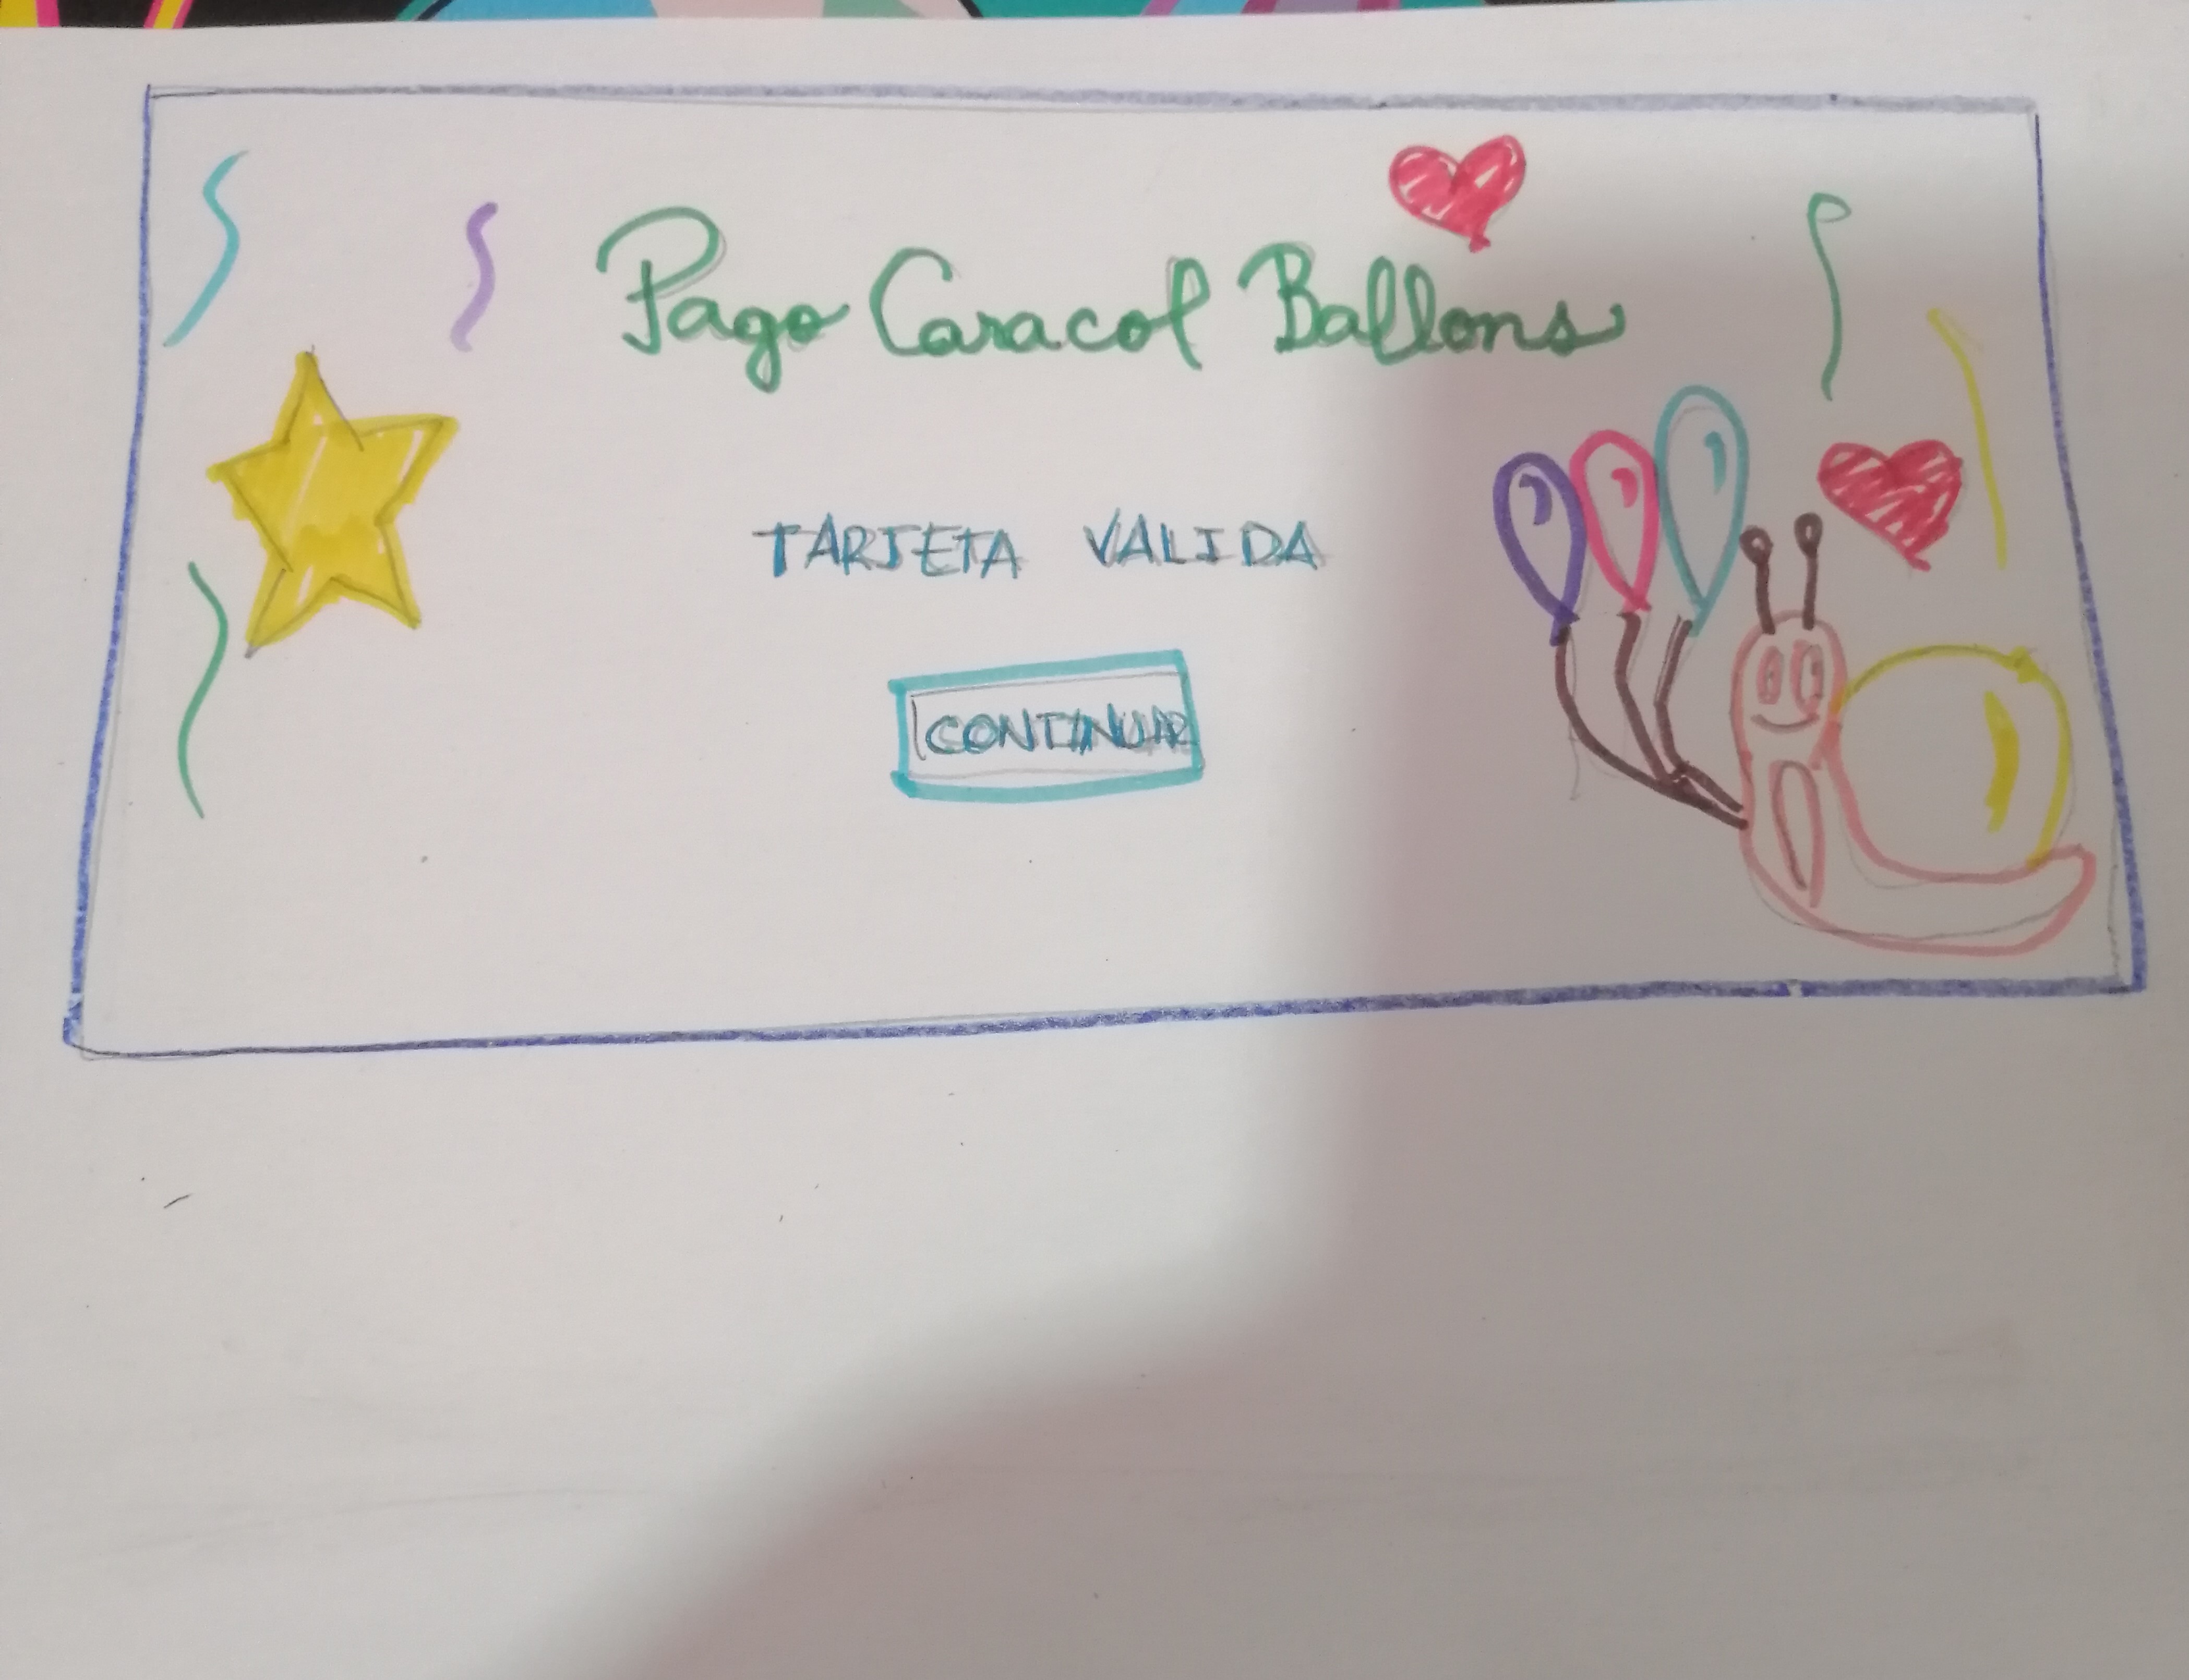 Pago Caracol Ballons
TARJETA VALIDA
CONTINUAR